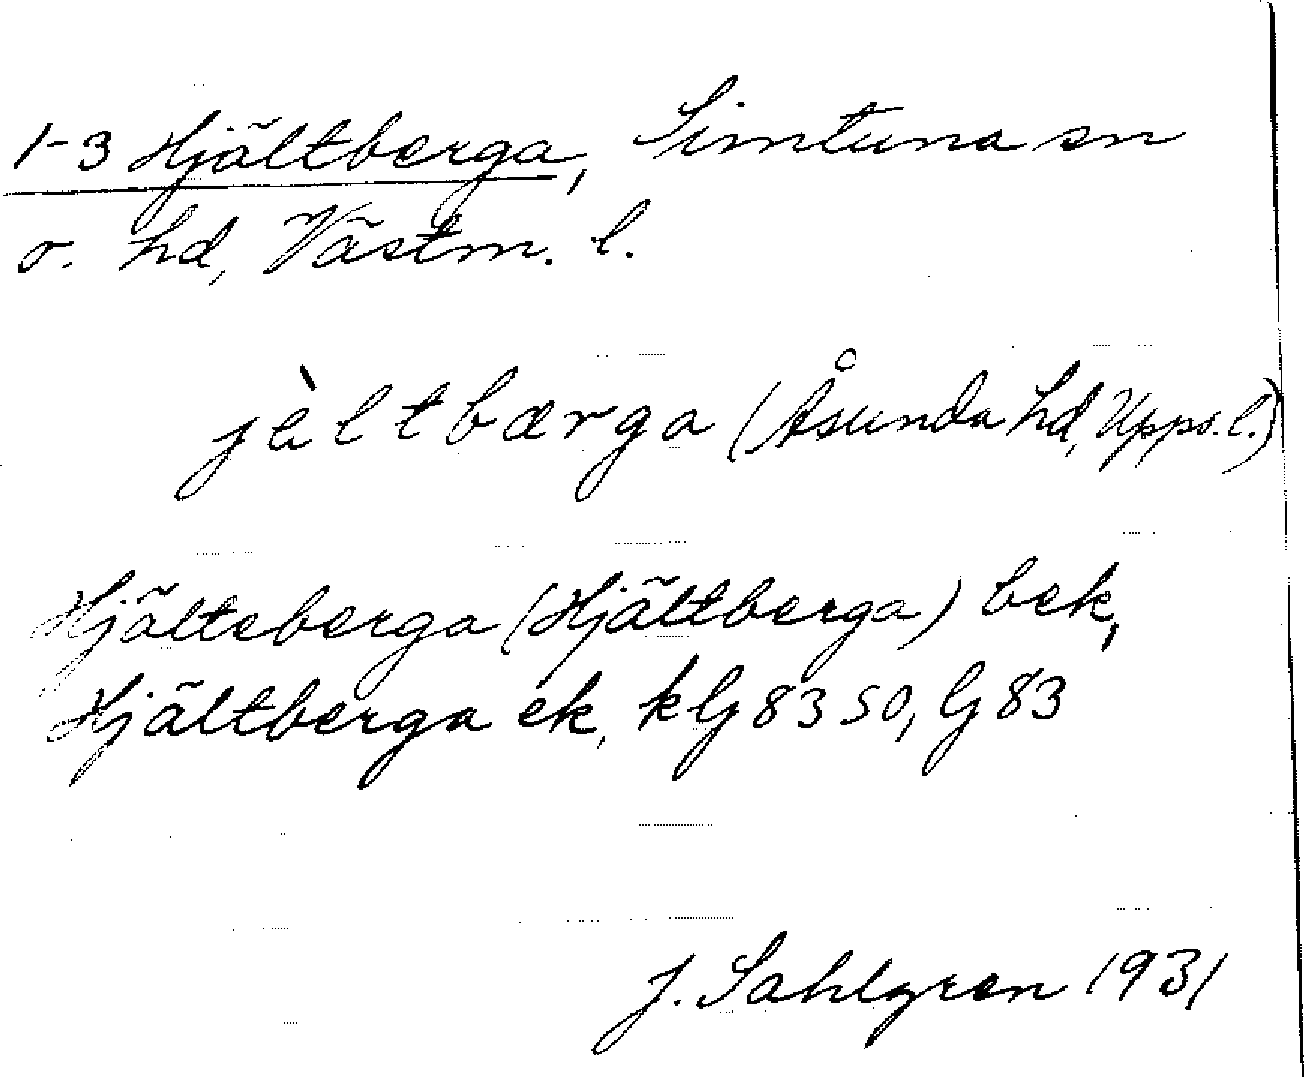 1-3 Hjältberga, Simtuna sn
o. hd, Västm. l.
jèltbærga (Åsunda hd, Upps. l.)
Hjälteberga (Hjältberga) bek,
Hjältberga ek, klj 83 SO, lj 83
J. Sahlgren 1931